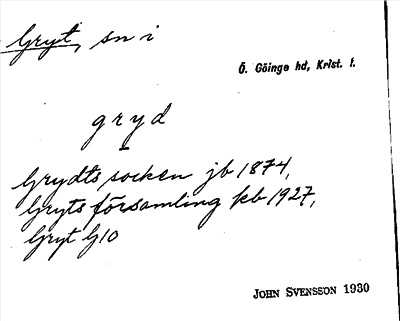 Gryt, sn i
Ö. Göinge hd, Krist. l.
gryd
Grydts socken jb 1874,
Gryts församling kb 1927,
Gryt G10
JOHN SVENSSON 1930